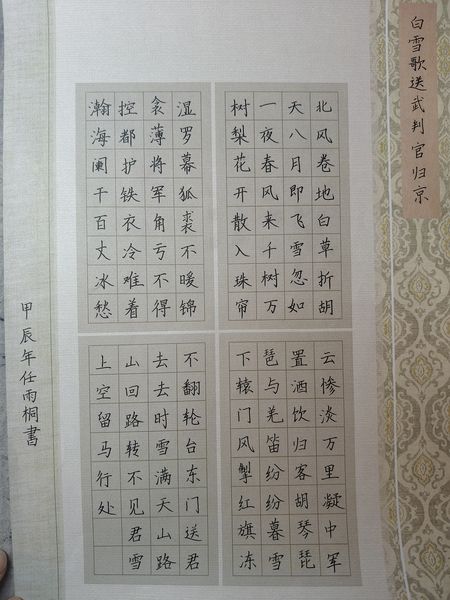 白雪歌送武判官归京
北风卷地白草折胡
天八月即飞雪忽如
一夜春风来千树万
树梨花开散入珠帘
湿罗幕狐裘不暖锦
衾薄将军角弓不得
控都护铁衣冷难着
瀚海阑干百丈冰愁
云惨淡万里凝中军
置酒饮归客胡琴琵
琶与羌笛纷纷暮雪
下辕门风掣红旗冻
不翻轮台东门送君
去去时雪满天山路
山回路转不见君雪
上空留马行处
甲辰年任雨桐書